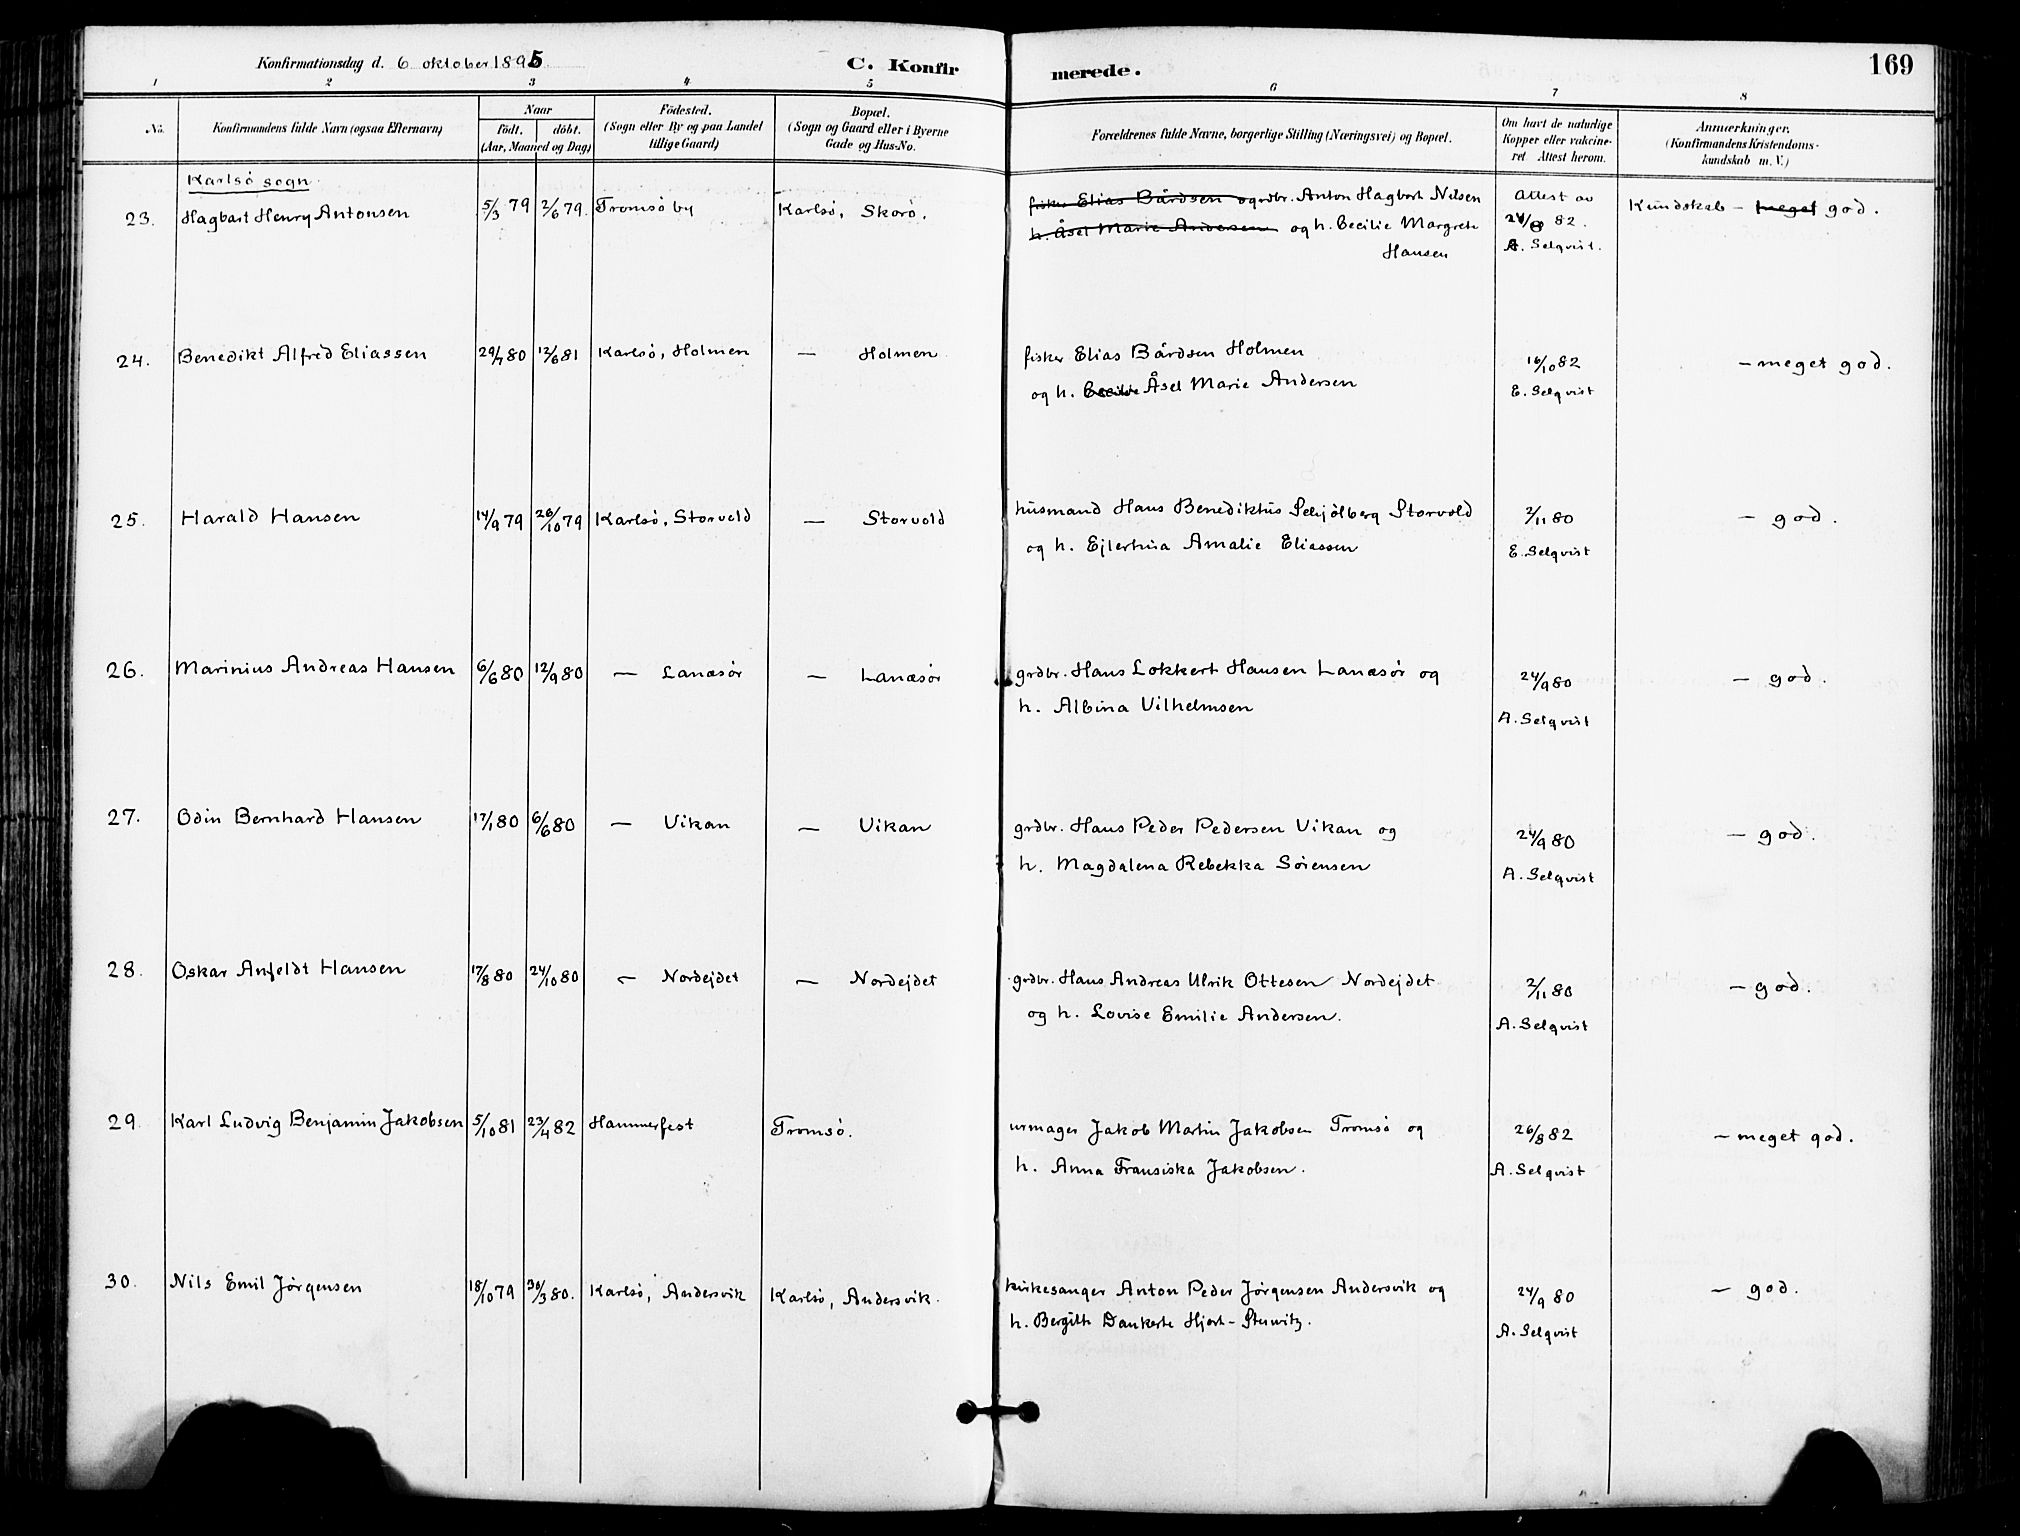 Konfirmationsdag d. 6 oktober 1895 C. Konfirmerede. 169
1 2 3 4 5 6 7 8
No. Konfirmandens fulde Navn (ogsaa Efternavn) Naar födt. döbt. (Aar, Maaned og Dag) Födested. (Sogn eller By og paa Landet tillige Gaard) Bopæl. (Sogn og Gaard eller i Byerne Gade og Hus-No. Forældrenes fulde Navne, borgerlige Stilling (Næringsvei) og Bopæl. Om havt de naturlige Kopper eller vakcineret Attest herom. Anmærkninger. (Konfirmandens Kristendomskundskab m. V.)
Karlsö sogn.
23. Hagbart Henry Antonsen 5/3 79 2/6 79. Tromsö by Karlsö, Skorö. fisker Elias Bårdsen og grdbr. Anton Hagbart Nilsen Attest av Kundskab – meget god.
h. Åsel Marie Andersen og h. Cecilie Margrete 24/8 82.
Hansen A. Selqvist.
24. Benedikt Alfred Eliassen 29/7 80 12/6 81 Karlsö, Holmen — Holmen fisker Elias Bårdsen Holmen 16/10 82 – meget god.
og h. Cecilie Åsel Marie Andersen E. Selqvist
25. Harald Hansen 14/9 79 26/10 79 Karlsö, Storvold — Storvold husmand Hans Benediktus Schjölberg Storvold 2/11 80 – god.
og h. Ejlertina Amalie Eliassen E. Selqvist
26. Marinius Andreas Hansen 6/6 80 12/9 80 — Lanæsör — Lanæsör grdbr. Hans Lokkert Hansen Lanæsör og 24/9 80 – god.
h. Albina Vilhelmsen A. Selqvist
27. Odin Bernhard Hansen 17/1 80 6/6 80 — Vikan — Vikan grdbr. Hans Peder Pedersen Vikan og 24/9 80 – god.
h. Magdalena Rebekka Sörensen A. Selqvist
28. Oskar Anfeldt Hansen 17/8 80 24/10 80 — Nordejdet — Nordejdet grdbr. Hans Andreas Ulrik Ottesen Nordejdet 2/11 80 – god.
og h. Lovise Emilie Andersen. A. Selqvist
29. Karl Ludvig Benjamin Jakobsen 5/10 81 23/4 82 Hammerfest Tromsö. urmager Jakob Martin Jakobsen Tromsö og 26/8 82 – meget god.
h. Anna Fransiska Jakobsen. A. Selqvist
30. Nils Emil Jörgensen 18/10 79 30/3 80. Karlsö, Andersvik Karlsö, Andersvik. kirkesanger Anton Peder Jörgensen Andersvik og 24/9 80 – god.
h. Bergith Dankerte Hjort-Stuwitz. A. Selqvist